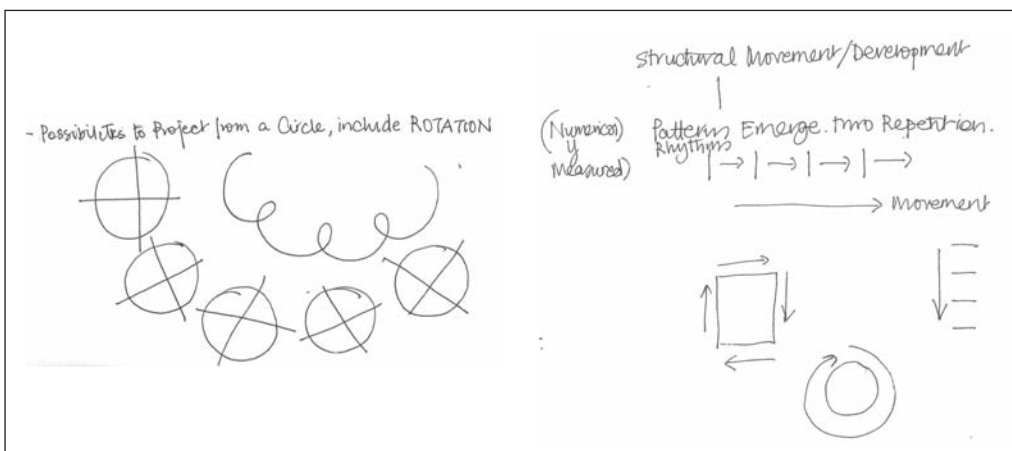 - Possibilities to Project from a Circle, include ROTATION
Structural Movement/Development
(Numerical Patterns Emerge. two Repetition.
y Rhythms
Measured)
Movement